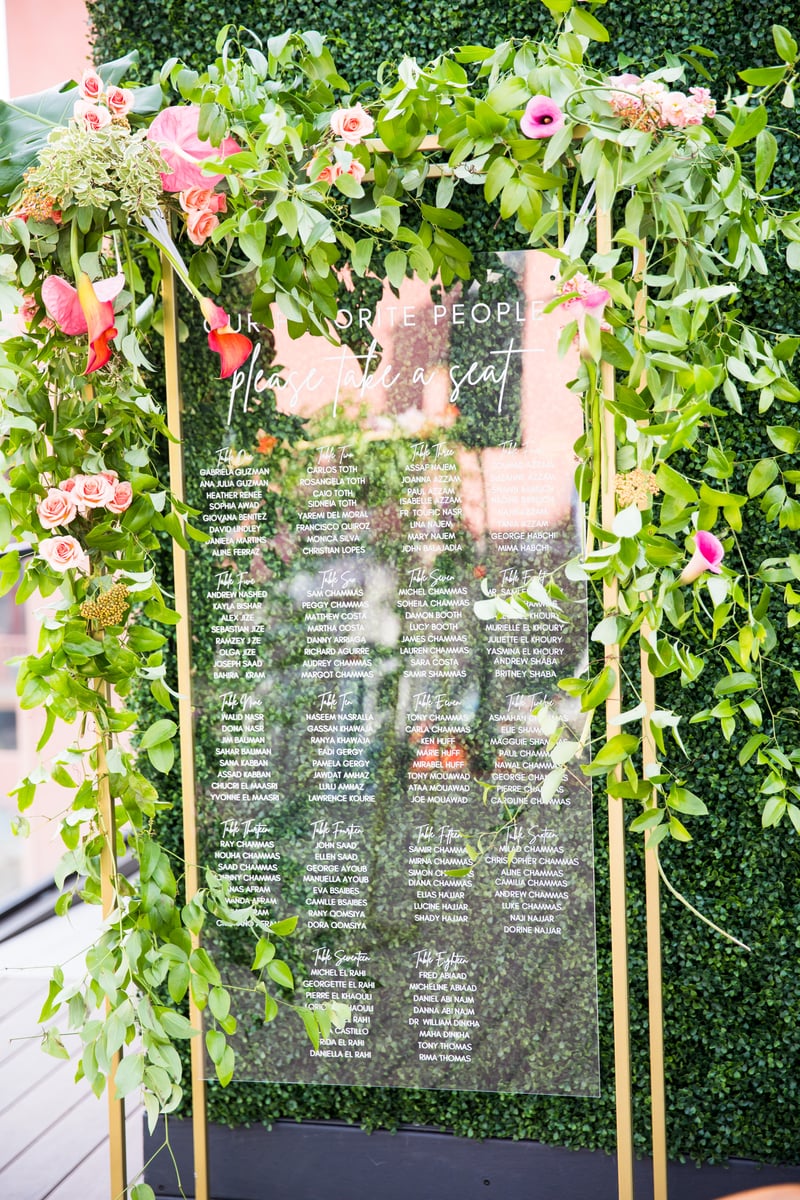 OUR FAVORITE PEOPLE
please take a seat
Table One
GABRIELA GUZMAN
ANA JULIA GUZMAN
HEATHER RENEE
SOPHIA AWAD
GIOVANA BENITEZ
DAVID LINDLEY
DANIELA MARTINS
ALINE FERRAZ
Table Two
CARLOS TOTH
ROSANGELA TOTH
CAIO TOTH
SIDNEIA TOTH
YAREMI DEL MORAL
FRANCISCO QUIROZ
MONICA SILVA
CHRISTIAN LOPES
Table Three
ASSAF NAJEM
JOANNA AZZAM
PAUL AZZAM
ISABELLE AZZAM
FR TOUFIC NASR
LINA NAJEM
MARY NAJEM
JOHN BALAJADIA
AZZAM
AZZAM
TANIA AZZAM
GEORGE HABCHI
MIMA HABCHI
Table Five
ANDREW NASHED
KAYLA BISHAR
ALEX JIZE
SEBASTIAN JIZE
RAMZEY JIZE
OLGA JIZE
JOSEPH SAAD
BAHIRA
Table Six
SAM CHAMMAS
PEGGY CHAMMAS
MATTHEW COSTA
MARTHA COSTA
DANNY ARRIAGA
RICHARD AGUIRRE
AUDREY CHAMMAS
MARGOT CHAMMAS
Table Seven
MICHEL CHAMMAS
SOHEILA CHAMMAS
DAMON BOOTH
LUCY BOOTH
JAMES CHAMMAS
LAUREN CHAMMAS
SARA COSTA
SAMIR SHAMMAS
Table Eight
MURIELLE EL KHOURY
JULIETTE EL KHOURY
YASMINA EL KHOURY
ANDREW SHABA
BRITNEY SHABA
Table Nine
WALID NASR
DONA NASR
JIM BAUMAN
SAHAR BAUMAN
SANA KABBAN
ASSAD KABBAN
CHUCRI EL MAASRI
YVONNE EL MAASRI
Table Ten
NASEEM NASRALLA
GASSAN KHAWAJA
RANYA KHAWAJA
FADI GERGY
PAMELA GERGY
JAWDAT AMHAZ
LULU AMHAZ
LAWRENCE KOURIE
Table Eleven
TONY CHAMMAS
CARLA CHAMMAS
KEN HUFF
MARIE HUFF
MIRABEL HUFF
TONY MOUAWAD
ATAA MOUAWAD
JOE MOUAWAD
Table Twelve
ASMAHAN
ELIE
MAGGUIE
PAUL CHAMMAS
NAWAL CHAMMAS
GEORGE
PIERRE
CAROLINE CHAMMAS
Table Thirteen
RAY CHAMMAS
NOUHA CHAMMAS
SAAD CHAMMAS
CHAMMAS
AFRAM
AFRAM
Table Fourteen
JOHN SAAD
ELLEN SAAD
GEORGE AYOUB
MANUELLA AYOUB
EVA BSAIBES
CAMILLE BSAIBES
RANY QOMSIYA
DORA QOMSIYA
Table Fifteen
SAMIR CHAMMAS
MIRNA CHAMMAS
SIMON
DIANA CHAMMAS
ELIAS HAJJAR
LUCINE HAJJAR
SHADY HAJJAR
Table Sixteen
MILAD CHAMMAS
CHRISTOPHER CHAMMAS
ALINE CHAMMAS
CAMILIA CHAMMAS
ANDREW CHAMMAS
LUKE CHAMMAS
NAJI NAJJAR
DORINE NAJJAR
Table Seventeen
MICHEL EL RAHI
GEORGETTE EL RAHI
PIERRE EL KHAOULI
EL RAHI
CASTILLO
EL RAHI
DANIELLA EL RAHI
Table Eighteen
FRED ABIAAD
MICHELINE ABIAAD
DANIEL ABI NAJM
DANNA ABI NAJM
DR WILLIAM DINKHA
MAHA DINKHA
TONY THOMAS
RIMA THOMAS